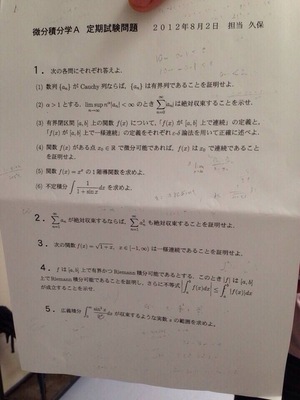 微分積分学A 定期試験問題 2012年8月2日 担当 久保
1. 次の各問にそれぞれ答えよ.
(1) 数列 {aₙ} が Cauchy 列ならば, {aₙ} は有界列であることを証明せよ.
(2) α > 1 とする. lim sup nᵅ|aₙ| < ∞ のとき Σ aₙ は絶対収束することを示せ.
(3) 有界閉区間 [a, b] 上の関数 f(x) について,「f(x) が [a, b] 上で連続」の定義と,
「f(x) が [a, b] 上で一様連続」の定義をそれぞれ ε-δ 論法を用いて正確に述べよ.
(4) 関数 f(x) がある点 x₀ ∈ R で微分可能であれば, f(x) は x₀ で連続であること
を証明せよ.
(5) 関数 f(x) = xˣ の1階導関数を求めよ.
(6) 不定積分 ∫ 1/(1 + sin x) dx を求めよ.
2. Σ aₙ が絶対収束するならば, Σ aₙ² も絶対収束することを証明せよ.
3. 次の関数 f(x) = √(1 + x), x ∈ [−1, ∞) は一様連続であることを証明せよ.
4. f は [a, b] 上で有界かつ Riemann 積分可能であるとする. このとき |f| は [a, b]
上で Riemann 積分可能であることを証明し, さらに不等式 |∫ₐᵇ f(x)dx| ≤ ∫ₐᵇ |f(x)|dx
が成立することを示せ.
5. 広義積分 が収束するような実数 の範囲を求めよ.